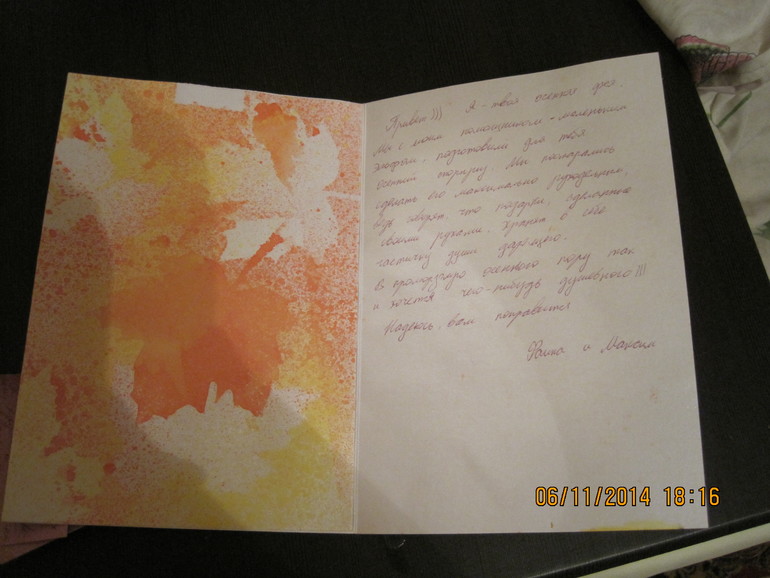 Привет!))) Я - твоя осенняя фея.
Мы с моим помощником - маленьким
эльфом, подготовили для тебя
осенний подарку. Мы постарались
сделать его максимально рукодельным,
ведь говорят, что подарки, сделанные
своими руками, хранят в себе
частичку души дарящего.
В промозглую осеннюю пору так
и хочется чего-нибудь душевного!!!
Надеюсь, вам понравится
и Максим
06/11/2014 18:16